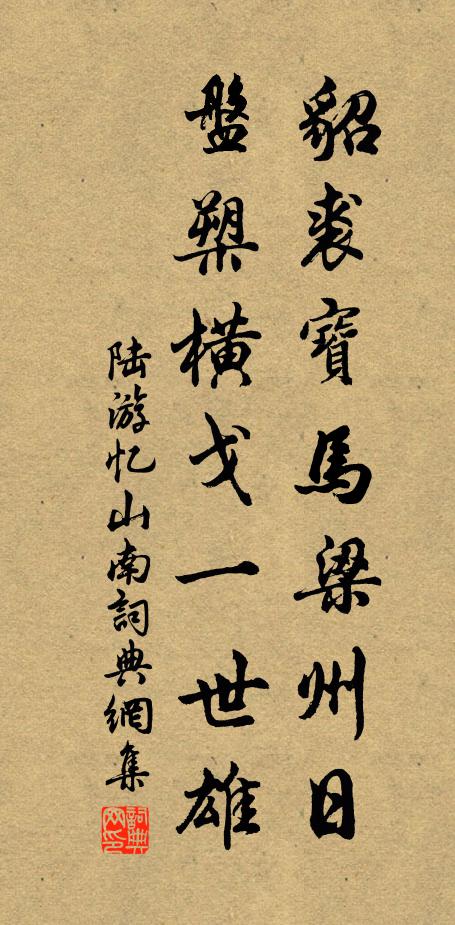 貂裘寶馬梁州日
盤槊橫戈一世雄
陆游忆山南詞典網集
詞典网印